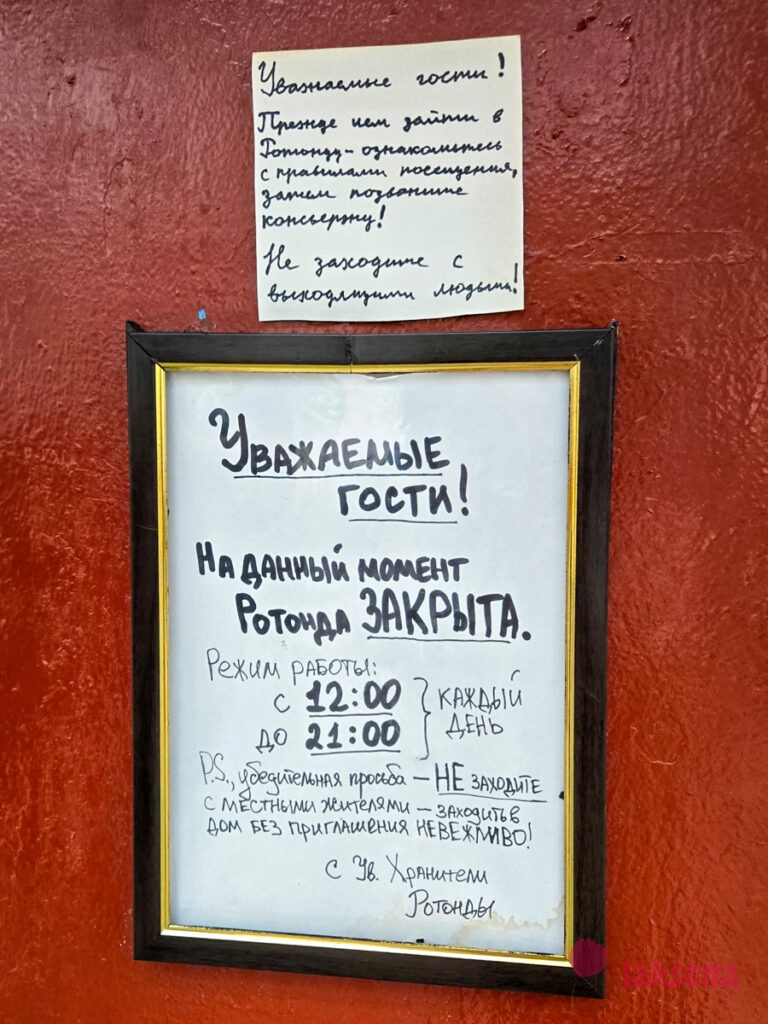 Уважаемые гости!
Прежде чем зайти в
Ротонду - ознакомьтесь
с правилами посещения,
затем позвоните
консьержу!
Не заходите с
выходящими людьми!
Уважаемые
гости!
На данный момент
Ротонда ЗАКРЫТА.
Режим работы:
с 12:00
до 21:00
каждый
день
P.S., убедительная просьба – НЕ заходите
с местными жителями – заходить в
дом без приглашения невежливо!
С Ув. Хранители
Ротонды
taksena